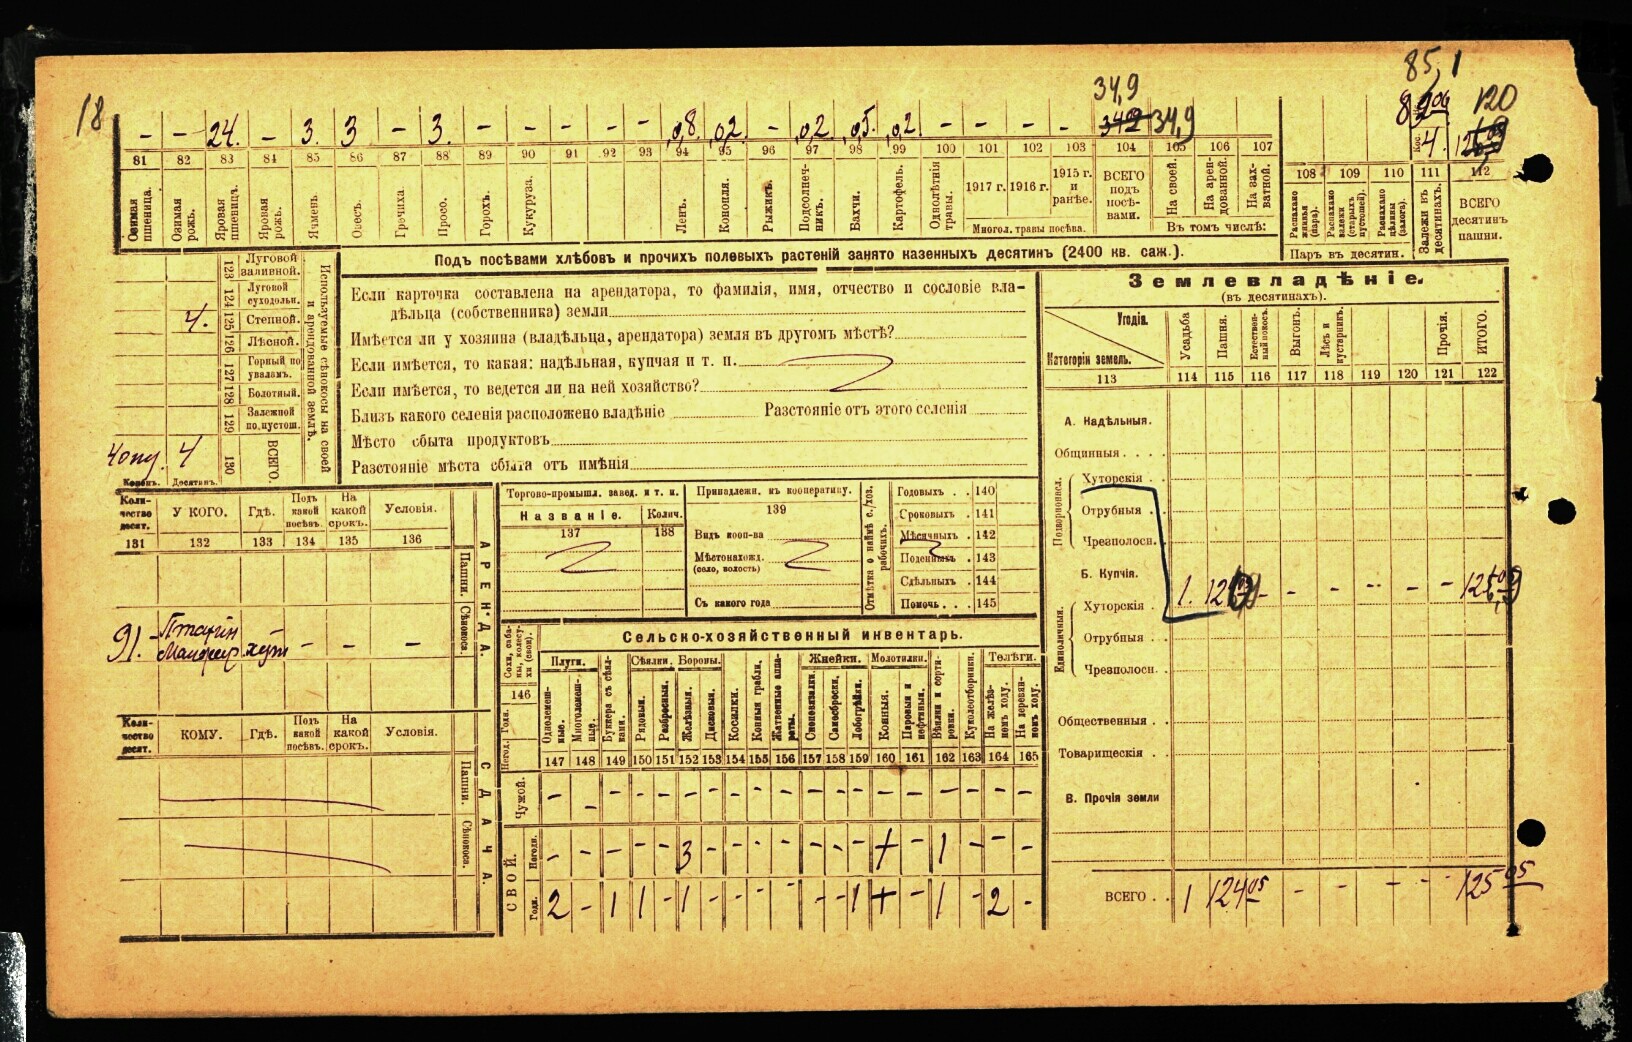 85,1
18
34,9
120
- - 24. - 3. 3 - 3. - - - - - 0,8. 0,2. - 0,2 0,5. 0,2 - - - - 34,9
4.
81 82 83 84 85 86 87 88 89 90 91 92 93 94 95 96 97 98 99 100 101 102 103 104 105 106 107
108 109 110 111 112
Озимая пшеница.
Озимая рожь.
Яровая пшеницъ.
Яровая рожь.
Ячмень.
Овесъ.
Гречиха.
Просо.
Горохъ.
Кукуруза.
Ленъ.
Конопля.
Рыжикъ.
Подсолнечникъ.
Бахчи.
Картофель.
Однолѣтнія травы.
1917 г.
1916 г.
1915 г. и ранѣе.
Многол. травы посѣва.
ВСЕГО подъ посѣвами.
На своей.
На арендованной.
На захватной.
Въ томъ числѣ:
Распахано жнивья (пара).
Распахано залежи (старыхъ пустошей).
Распахано цѣлины (залога).
Паръ въ десятин.
Залежи въ десятинахъ.
ВСЕГО десятинъ пашни.
Подъ посѣвами хлѣбовъ и прочихъ полевыхъ растеній занято казенныхъ десятинъ (2400 кв. саж.).
123 Луговой заливной.
124 Луговой суходольн.
4. 125 Степной.
126 Лѣсной.
127 Горный по уваламъ.
128 Болотный.
129 Залежной по пустош.
4 130 ВСЕГО.
Копенъ. Десятинъ.
Используемые сѣнокосы на своей и арендованной землѣ.
Если карточка составлена на арендатора, то фамилія, имя, отчество и сословіе вла-
дѣльца (собственника) земли
Имѣется ли у хозяина (владѣльца, арендатора) земля въ другомъ мѣстѣ?
Если имѣется, то какая: надѣльная, купчая и т. п.
Если имѣется, то ведется ли на ней хозяйство?
Близъ какого селенія расположено владѣніе Разстояніе отъ этого селенія
Мѣсто сбыта продуктовъ
Разстояніе мѣста сбыта отъ имѣнія
Землевладѣніе.
(въ десятинахъ).
Угодія.
Категоріи земель.
Усадьба
Пашня.
Естественный покосъ.
Выгонъ.
Лѣсъ и кустарникъ.
Прочія.
ИТОГО.
113 114 115 116 117 118 119 120 121 122
А. Надѣльныя.
Общинныя
Подворнонасл.
Хуторскія
Отрубныя
Чрезполосн.
Б. Купчія.
Единоличныя.
Хуторскія
Отрубныя
Чрезполосн.
Общественныя
Товарищескія
В. Прочія земли
ВСЕГО 1 124 05 - - - - 125 05
Количество десят.
У КОГО.
Гдѣ.
Подъ какой посѣвъ.
На какой срокъ.
Условія.
131 132 133 134 135 136
Пашни.
Сѣнокоса.
АРЕНДА.
91. - - -
Количество десят.
КОМУ.
Гдѣ.
Подъ какой посѣвъ.
На какой срокъ.
Условія.
Пашни.
Сѣнокоса.
СДАЧА.
Торгово-промышл. завед. и т. п.
Названіе. Колич.
137 138
Принадлежн. къ кооператину.
139
Видъ кооп-ва
Мѣстонахожд.
(село, волость)
Съ какого года
Отмѣтка о наймѣ с./хоз. рабочихъ.
Годовыхъ 140
Сроковыхъ 141
Мѣсячныхъ 142
Поденныхъ 143
Сдѣльныхъ 144
Помочь 145
Сельско-хозяйственный инвентарь.
Сохи, сабаны, колесухи (свои).
146
Годн.
Негод.
Плуги.
Сѣялки.
Бороны.
Жнейки.
Молотилки.
Телѣги.
Однолемешные.
Многолемешные.
Буккера съ сѣялками.
Рядовыя.
Разбросныя.
Желѣзныя.
Дисковыя.
Косилки.
Конныя грабли.
Жатвенные аппараты.
Сноповязалки.
Самосброски.
Лобогрѣйки.
Конныя.
Паровыя и нефтяныя.
Вѣялки и сортировки.
Куколеотборники.
На желѣзномъ ходу.
На деревянномъ ходу.
147 148 149 150 151 152 153 154 155 156 157 158 159 160 161 162 163 164 165
Чужой. - - - - - - - - - - - - - - - - - - -
СВОЙ.
Негодн. - - - - - 3 - - - - - - - + - 1 - - -
Годн. 2 - 1 1 - 1 - - - - - - 1 + - 1 - 2 -